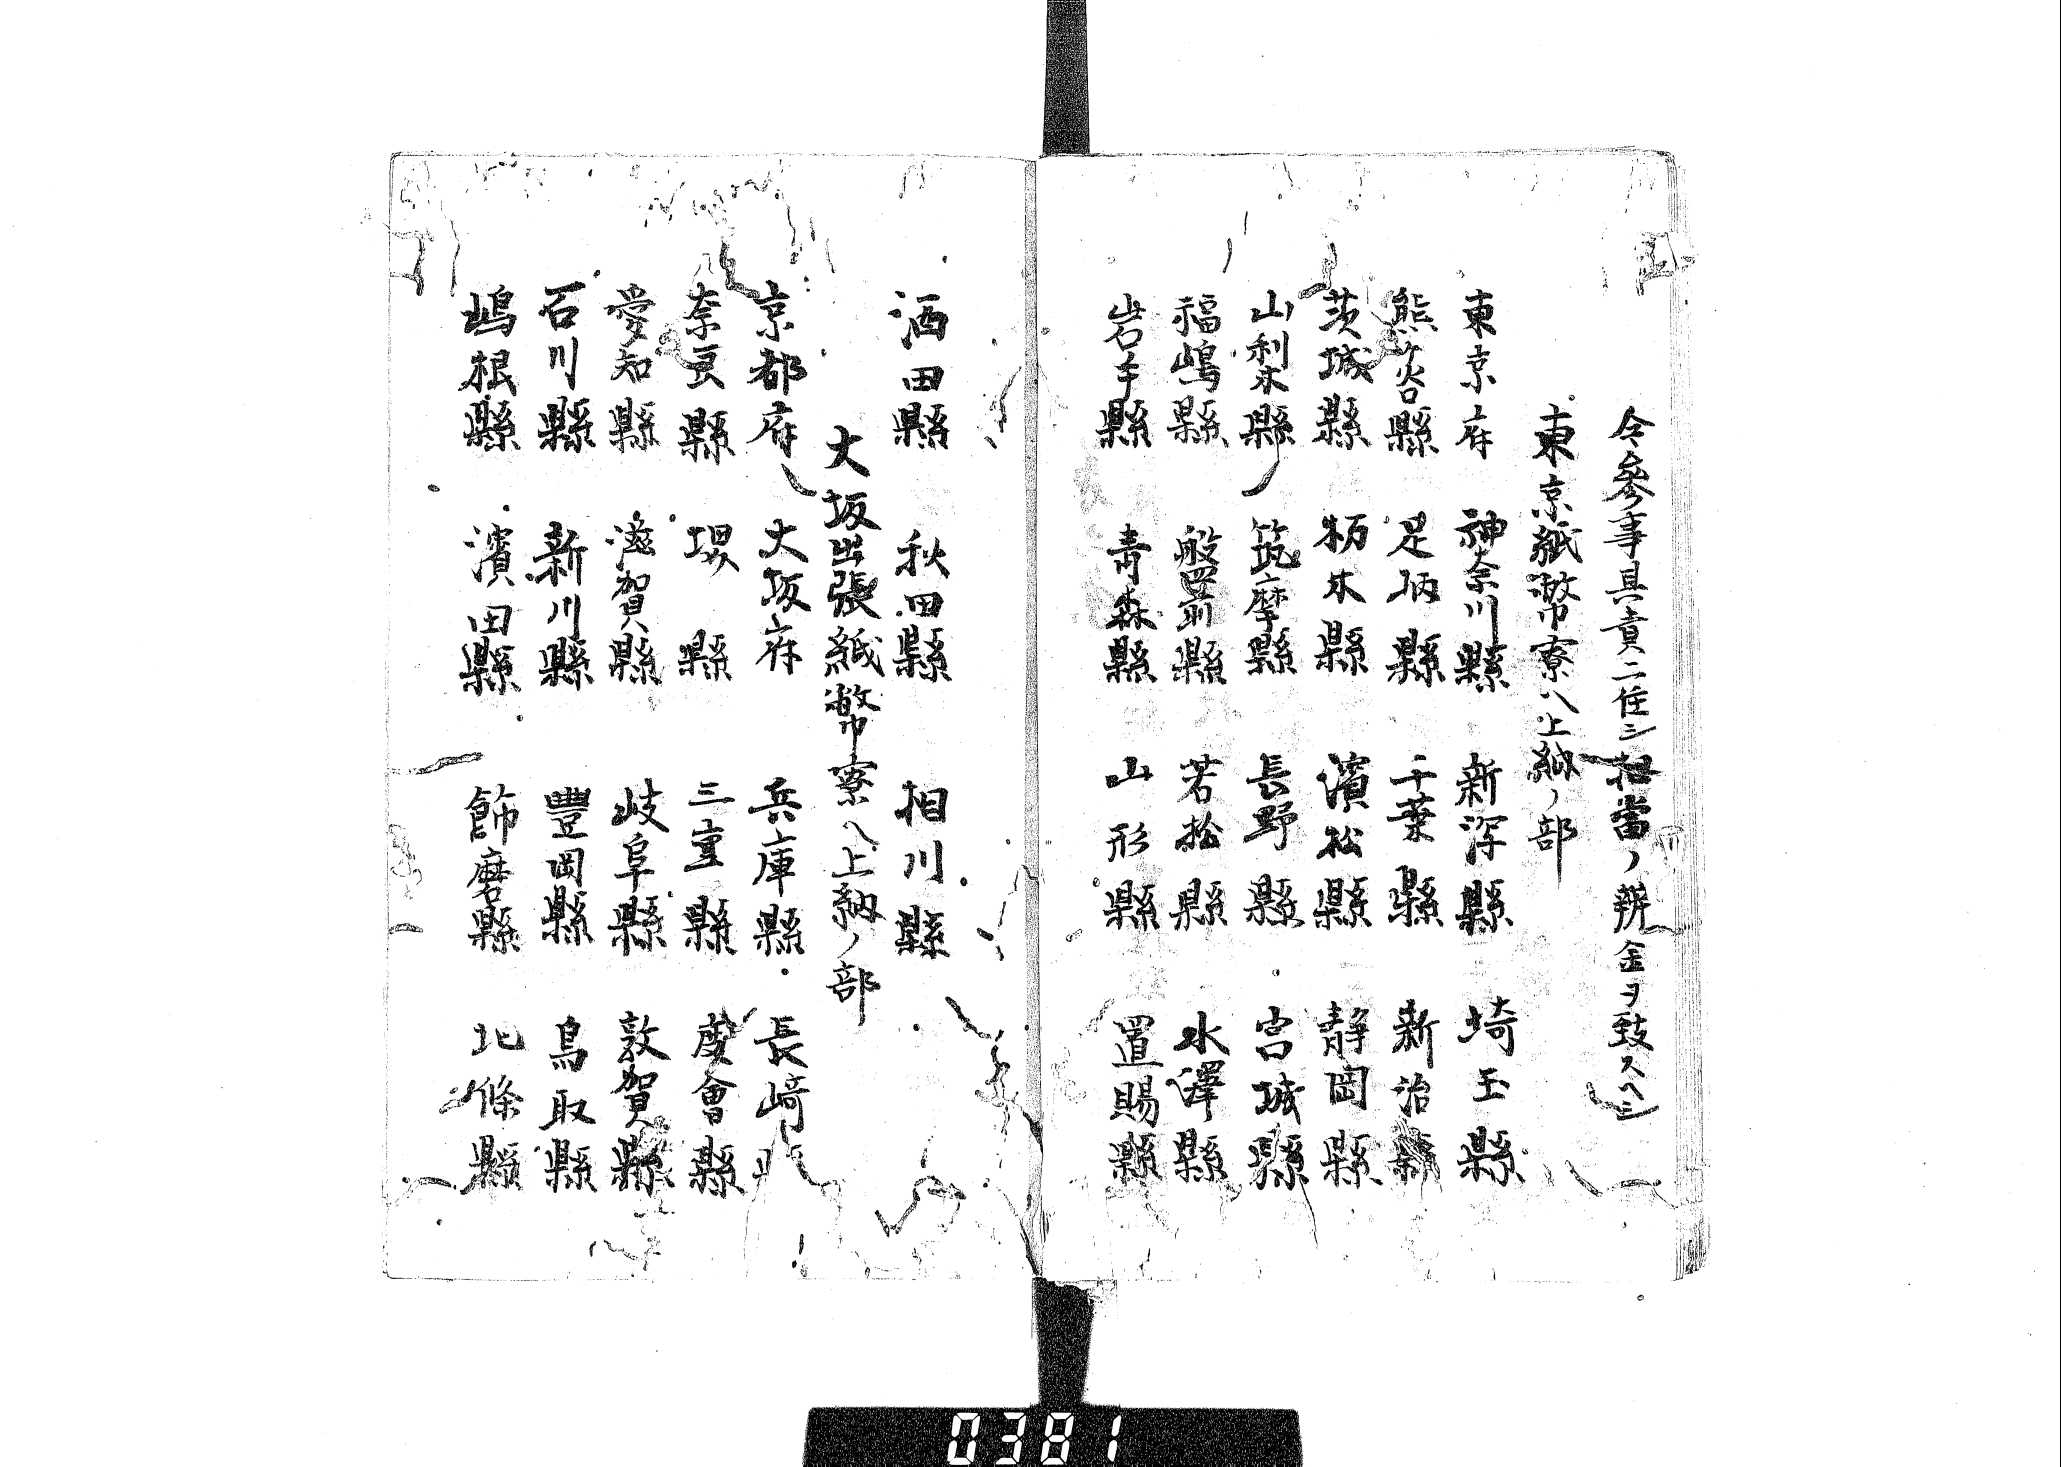 令參事具責ニ任シ相當ノ辨金ヲ致スヘシ
東京紙幣寮ヘ上納ノ部
東京府 神奈川縣 新潟縣 埼玉縣
熊谷縣 足柄縣 千葉縣 新治縣
茨城縣 栃木縣 濱松縣 静岡縣
山梨縣 筑摩縣 長野縣 宮城縣
福嶋縣 磐前縣 若松縣 水澤縣
岩手縣 青森縣 山形縣 置賜縣
酒田縣 秋田縣 相川縣
大坂出張紙幣寮ヘ上納ノ部
京都府 大坂府 兵庫縣 長﨑縣
奈良縣 堺縣 三重縣 度會縣
愛知縣 滋賀縣 岐阜縣 敦賀縣
石川縣 新川縣 豐岡縣 鳥取縣
嶋根縣 濱田縣 飾磨縣 北條縣
0381